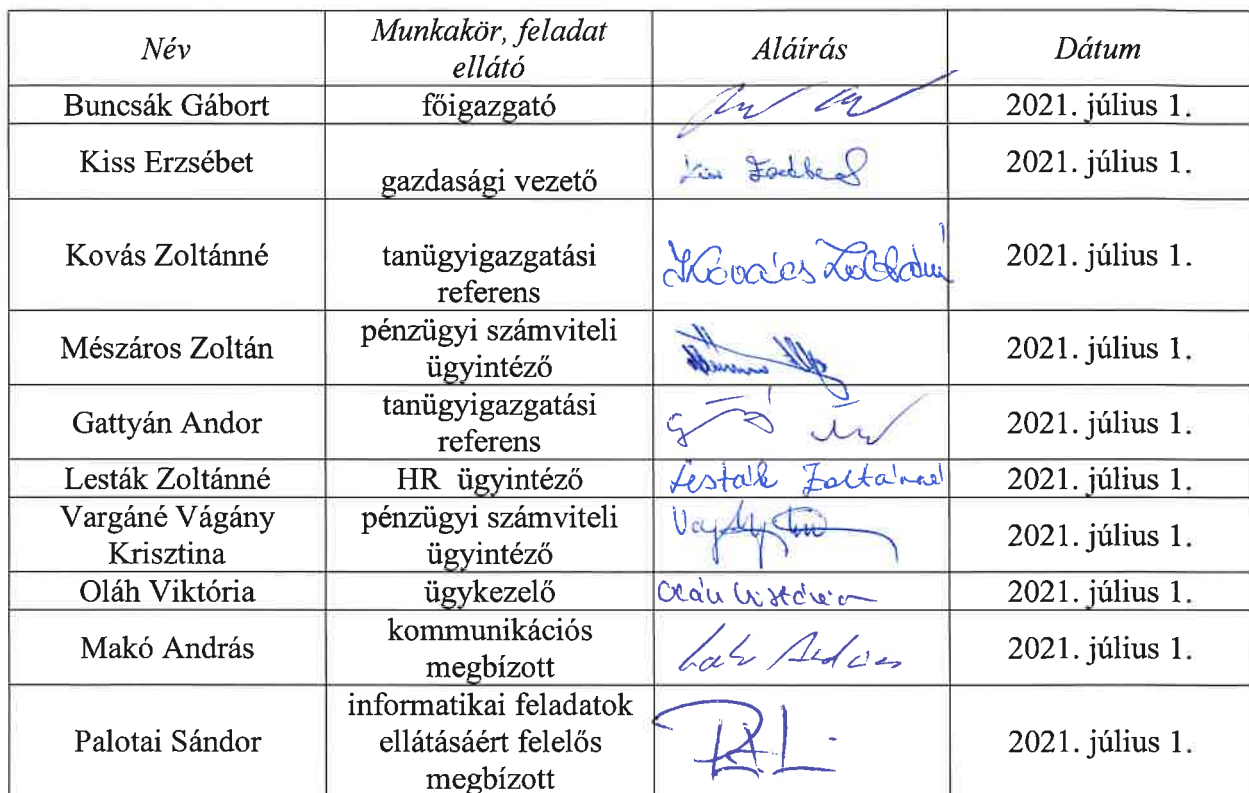 Név Munkakör, feladat ellátó Aláírás Dátum
Buncsák Gábort főigazgató 2021. július 1.
Kiss Erzsébet gazdasági vezető 2021. július 1.
Kovás Zoltánné tanügyigazgatási referens Kovács Zoltánné 2021. július 1.
Mészáros Zoltán pénzügyi számviteli ügyintéző 2021. július 1.
Gattyán Andor tanügyigazgatási referens 2021. július 1.
Lesták Zoltánné HR ügyintéző Lesták Zoltánné 2021. július 1.
Vargáné Vágány Krisztina pénzügyi számviteli ügyintéző 2021. július 1.
Oláh Viktória ügykezelő Oláh Viktória 2021. július 1.
Makó András kommunikációs megbízott 2021. július 1.
Palotai Sándor informatikai feladatok ellátásáért felelős megbízott 2021. július 1.